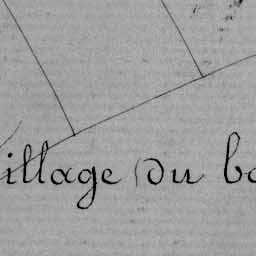 village du bo